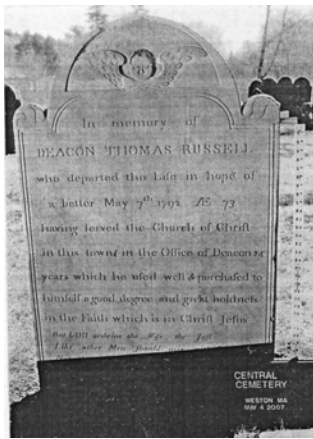 In memory of
DEACON THOMAS RUSSELL
who departed this Life in hope of
a better May 7th 1792 Æ 73
having ſerved the Church of Chriſt
in this town in the Office of Deacon
years which he uſed well & purchaſed to
himſelf a good degree and great boldneſs
in the Faith which is in Chriſt Jeſus
But GOD ordains the Juſt
Like other Men Should
CENTRAL
CEMETERY
WESTON MA
MAY 4 2007